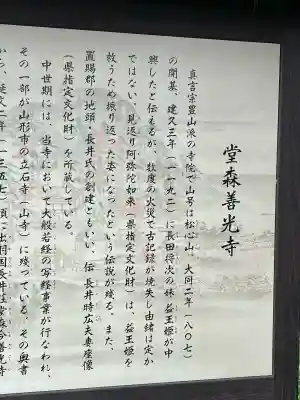 堂森善光寺
真言宗豊山派の寺院で山号は松心山、大同二年(八〇七)
の開基、建久三年(一一九二)に長田将次の妹益王姫が中
興したと伝もるが、数度の火災で古記録が焼失し由緒は定か
ではない。見返り阿弥陀如来(県指定文化財)は、益王姫を
救うため振り返った姿になったという伝説が残る。また、
置賜郡の地頭・長井氏の創建ともいい、伝長井時広夫妻座像
(県指定文化財)を所蔵している。
中世期には、当寺において大般若経の写経事業が行なわれ、
その一部が山形市の立石寺(山寺)に残っている。その奥書
から、延文二年(一三五七)頃に出羽国長井荘堂森今善光寺